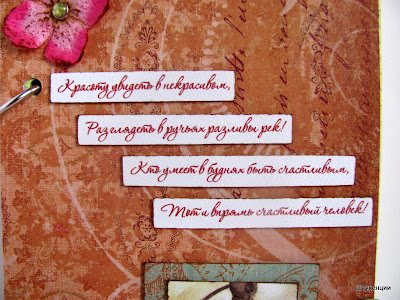 Красоту увидеть в некрасивом,
Разглядеть в ручьях разливы рек!
Кто умеет в буднях быть счастливым,
Тот и впрямь счастливый человек!